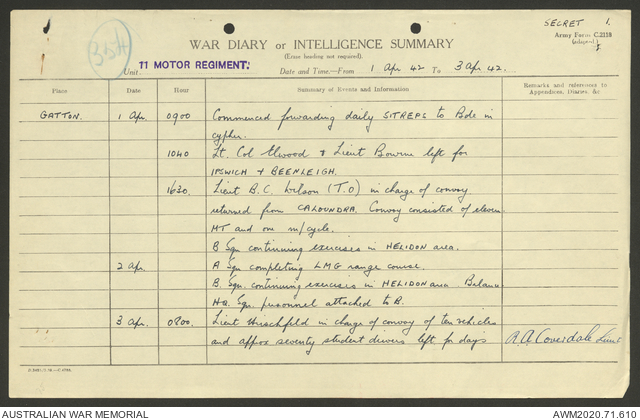 SECRET 1.
354
WAR DIARY or INTELLIGENCE SUMMARY
Army Form C.2118
(Erase heading not required).
Unit 11 MOTOR REGIMENT. Date and Time—From 1 Apr 42 To 3 Apr 42.
Place Date Hour Summary of Events and Information Remarks and references to
Appendices, Diaries, &c
GATTON. 1 Apr. 0900 Commenced forwarding daily SITREPS to Bde in
cypher.
1040 Lt. Col Elwood & Lieut Bourne left for
IPSWICH & BEENLEIGH.
1630. Lieut B.C. Wilson (T.O) in charge of convoy
returned from CALOUNDRA. Convoy consisted of eleven
MT and one m/cycle.
B Sqn continuing exercises in HELIDON area.
2 Apr. A Sqn completing LMG range course.
B. Sqn. continuing exercises in HELIDON area. Balance
HQ. Sqn. personnel attached to B.
3 Apr. 0800. Lieut Hirschfeld in charge of convoy of ten vehicles
and approx seventy student drivers left for days A.A. Coverdale Lieut
AUSTRALIAN WAR MEMORIAL AWM2020.71.610